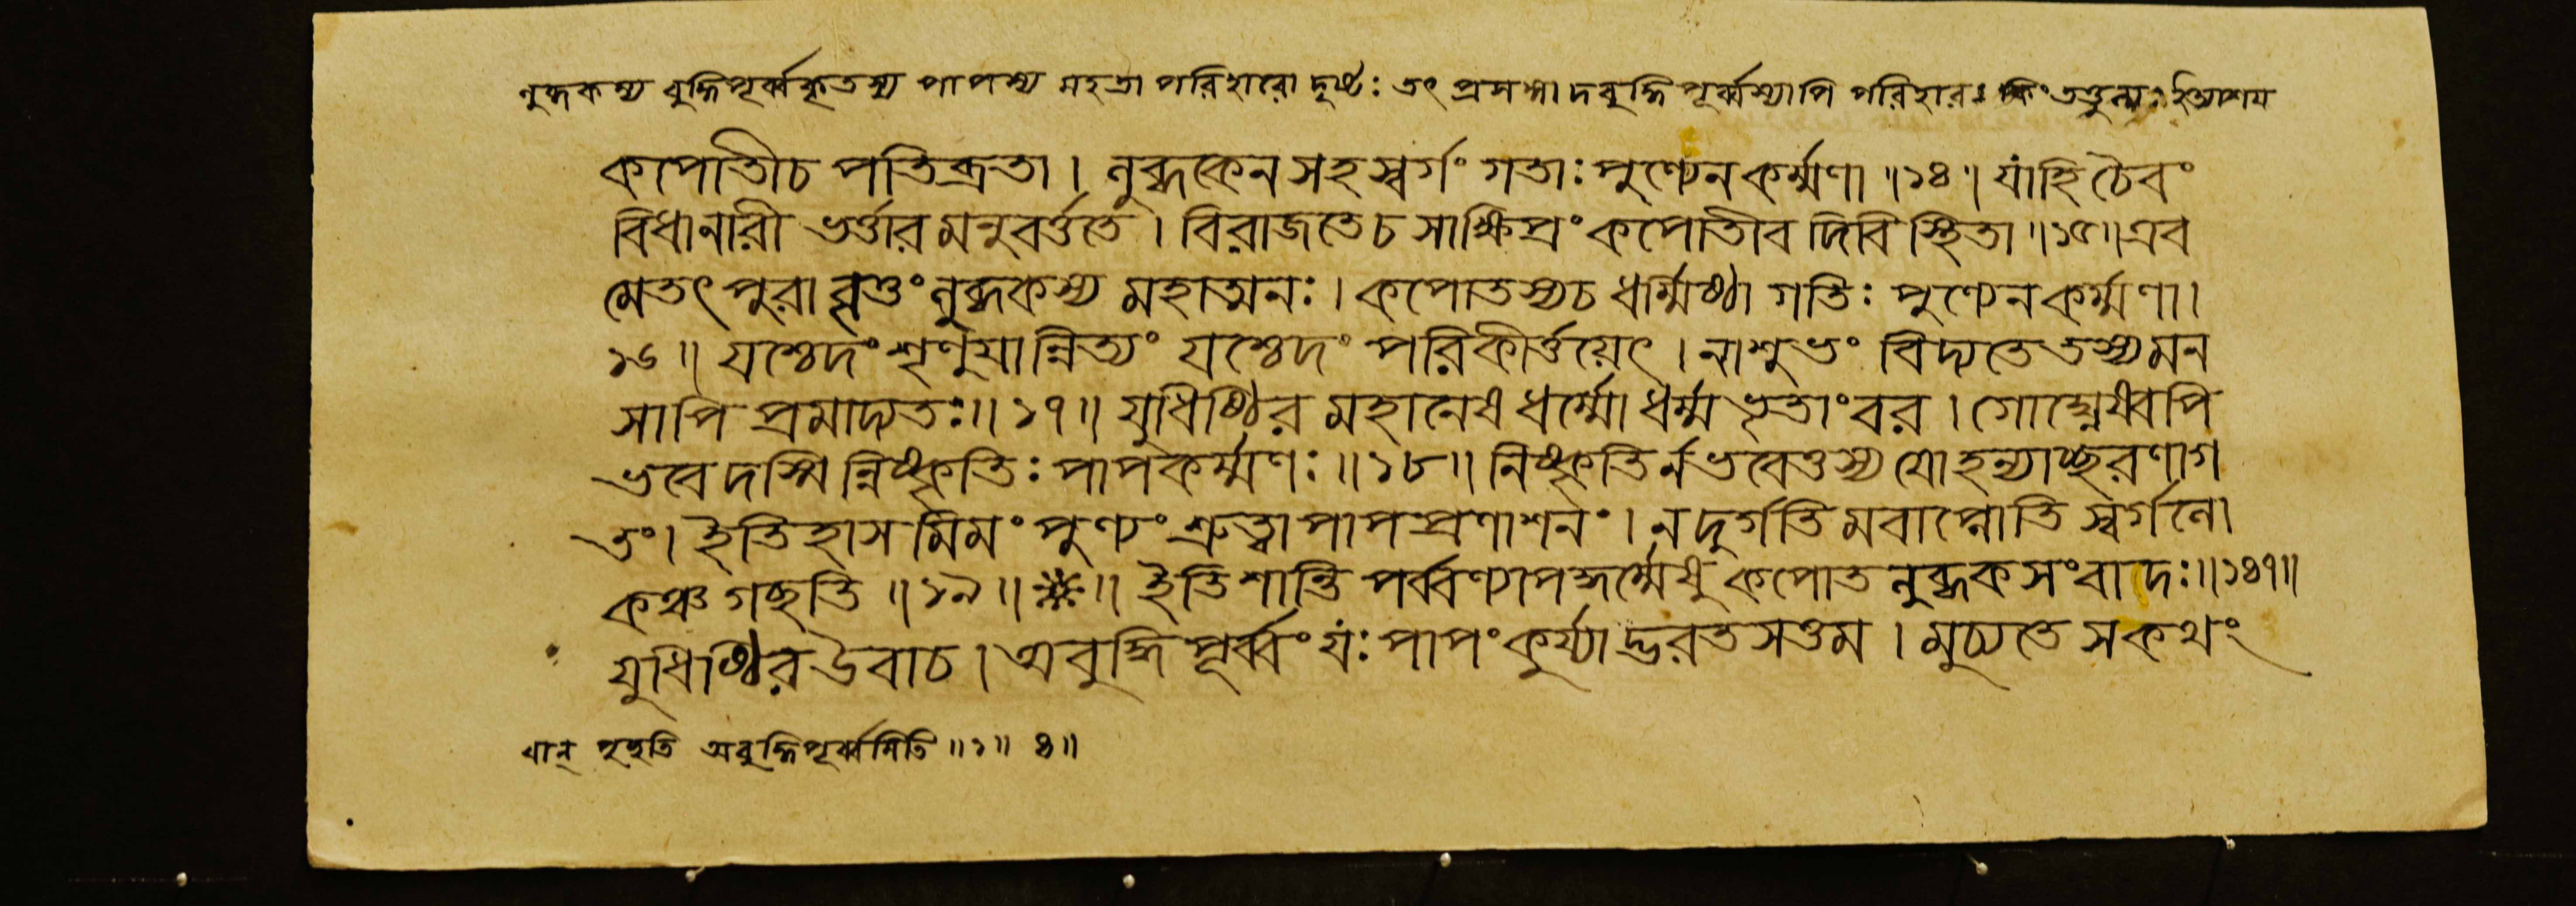 লুব্ধকস্য বুদ্ধিপূর্ব্বকৃতস্য পাপস্য মহতা পরিহারো দৃষ্টঃ তৎ প্রসঙ্গাদবুদ্ধিপূর্ব্বস্যাপি পরিহারঃ কিং
কপোতীচ পতিব্রতা । লুব্ধকেন সহ স্বর্গং গতাঃ পুণ্যেন কর্ম্মণা ॥১৪॥ যাহি চৈবং
বিধানারী ভর্ত্তারমনুবর্ত্ততে । বিরাজতেচ সাক্ষিপ্রং কপোতীব দিবি স্থিতা ॥১৫॥ এব
মেতৎ পুরাবৃত্তং লুব্ধকস্য মহাত্মনঃ । কপোতস্যচ ধর্ম্মিষ্ঠা গতিঃ পুণ্যেন কর্ম্মণা ।
১৬॥ যশ্চেদং শৃণুয়ান্নিত্যং যশ্চেদং পরিকীর্ত্তয়েৎ । নাশুভং বিদ্যতে তস্য মন
সাপি প্রমাদ্যতঃ॥ ১৭॥ যুধিষ্ঠির মহানেষ ধর্ম্মো ধর্ম্মভৃতাংবর । গোঘ্নেষ্বপি
ভবেদস্মিন্নিষ্কৃতিঃ পাপকর্ম্মণঃ ॥১৮॥ নিষ্কৃতির্নভবেত্তস্য যোহন্যাচ্ছরণাগ
তং। ইতিহাসমিমং পুণ্যং শ্রুত্বা পাপপ্রণাশনং । ন দুর্গতিমবাপ্নোতি স্বর্গলো
কঞ্চ গচ্ছতি ॥১৯॥ ॥ ইতি শান্তি পর্ব্বণ্যাপদ্ধর্ম্মেষু কপোত লুব্ধকসংবাদঃ॥১৪৭॥
যুধিষ্ঠির উবাচ । অবুদ্ধিপূর্ব্বং যঃ পাপং কুর্য্যাদ্ভরতসত্তম । মুচ্যতে স কথং
বান্ পৃচ্ছতি অবুদ্ধিপূর্ব্বমিতি ॥১॥ ৪॥